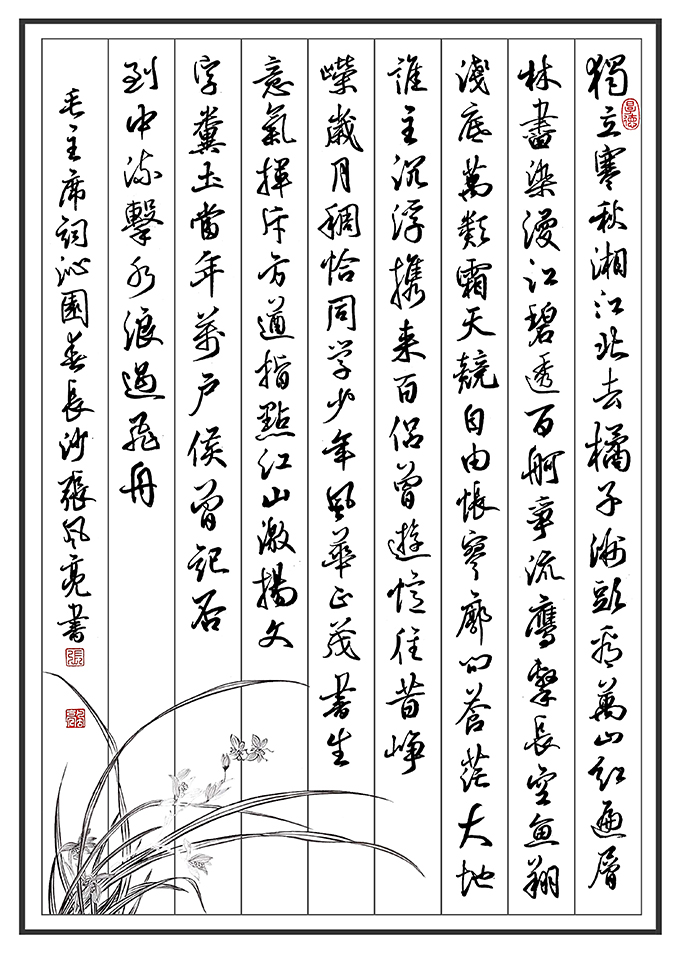 獨立寒秋湘江北去橘子洲頭看萬山紅遍層
林盡染漫江碧透百舸爭流鷹擊長空魚翔
淺底萬類霜天競自由悵寥廓問蒼茫大地
誰主沉浮携来百侶曾遊憶往昔崢
嶸歲月稠恰同学少年風華正茂書生
意氣揮斥方遒指點江山激揚文
字糞土當年萬户侯曾記否
到中流擊水浪遏飛舟
毛主席詞沁園春長沙張风亮書
張